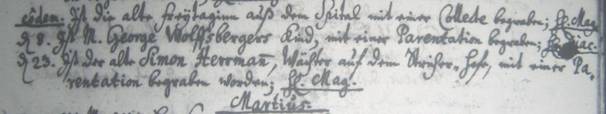 eodem. Ist die alte Freytaginn auß dem Spital mit einer Collecte begraben; H. Mag.
d. 8. Ist M. George Wolffsbergers Kind, mit einer Parentation begraben; H. Diac.
d. 23. Ist der alte Simon Herrmañ, Wächter auf dem Hofe, mit einer Pa,
rentation begraben worden; H. Mag.
Martius.